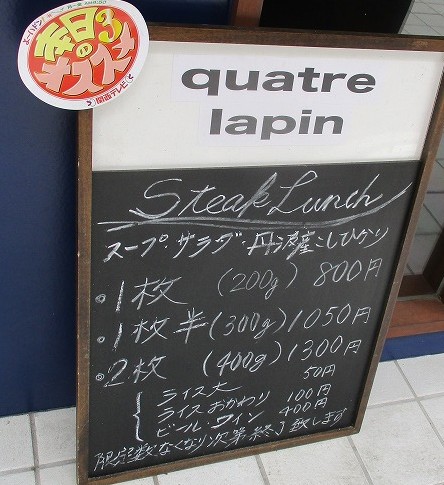 よ~いドン!
本日の
オススメ3
関西テレビ
quatre
lapin
Steak Lunch
スープ・サラダ・丹波産こしひかり
・1枚 (200g) 800円
・1枚半(300g) 1050円
・2枚 (400g) 1300円
ライス大 50円
ライスおかわり 100円
ビール・ワイン 400円
限定数なくなり次第終了致します